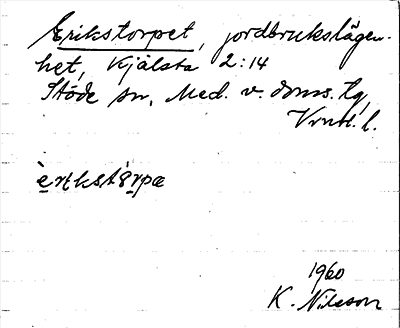 Erikstorpet, jordbrukslägen-
het, Kjälsta 2:14
Stöde sn, Med. v. doms. tg,
Vrnl. l.
èrɩkstɔ̀rpæ
1960
K. Nilsson